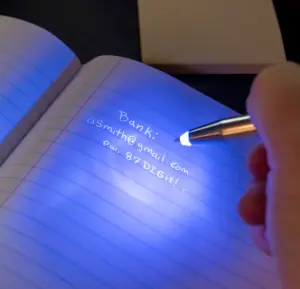 Bank:
aSmith@gmail.com
pw. 87DIGH!